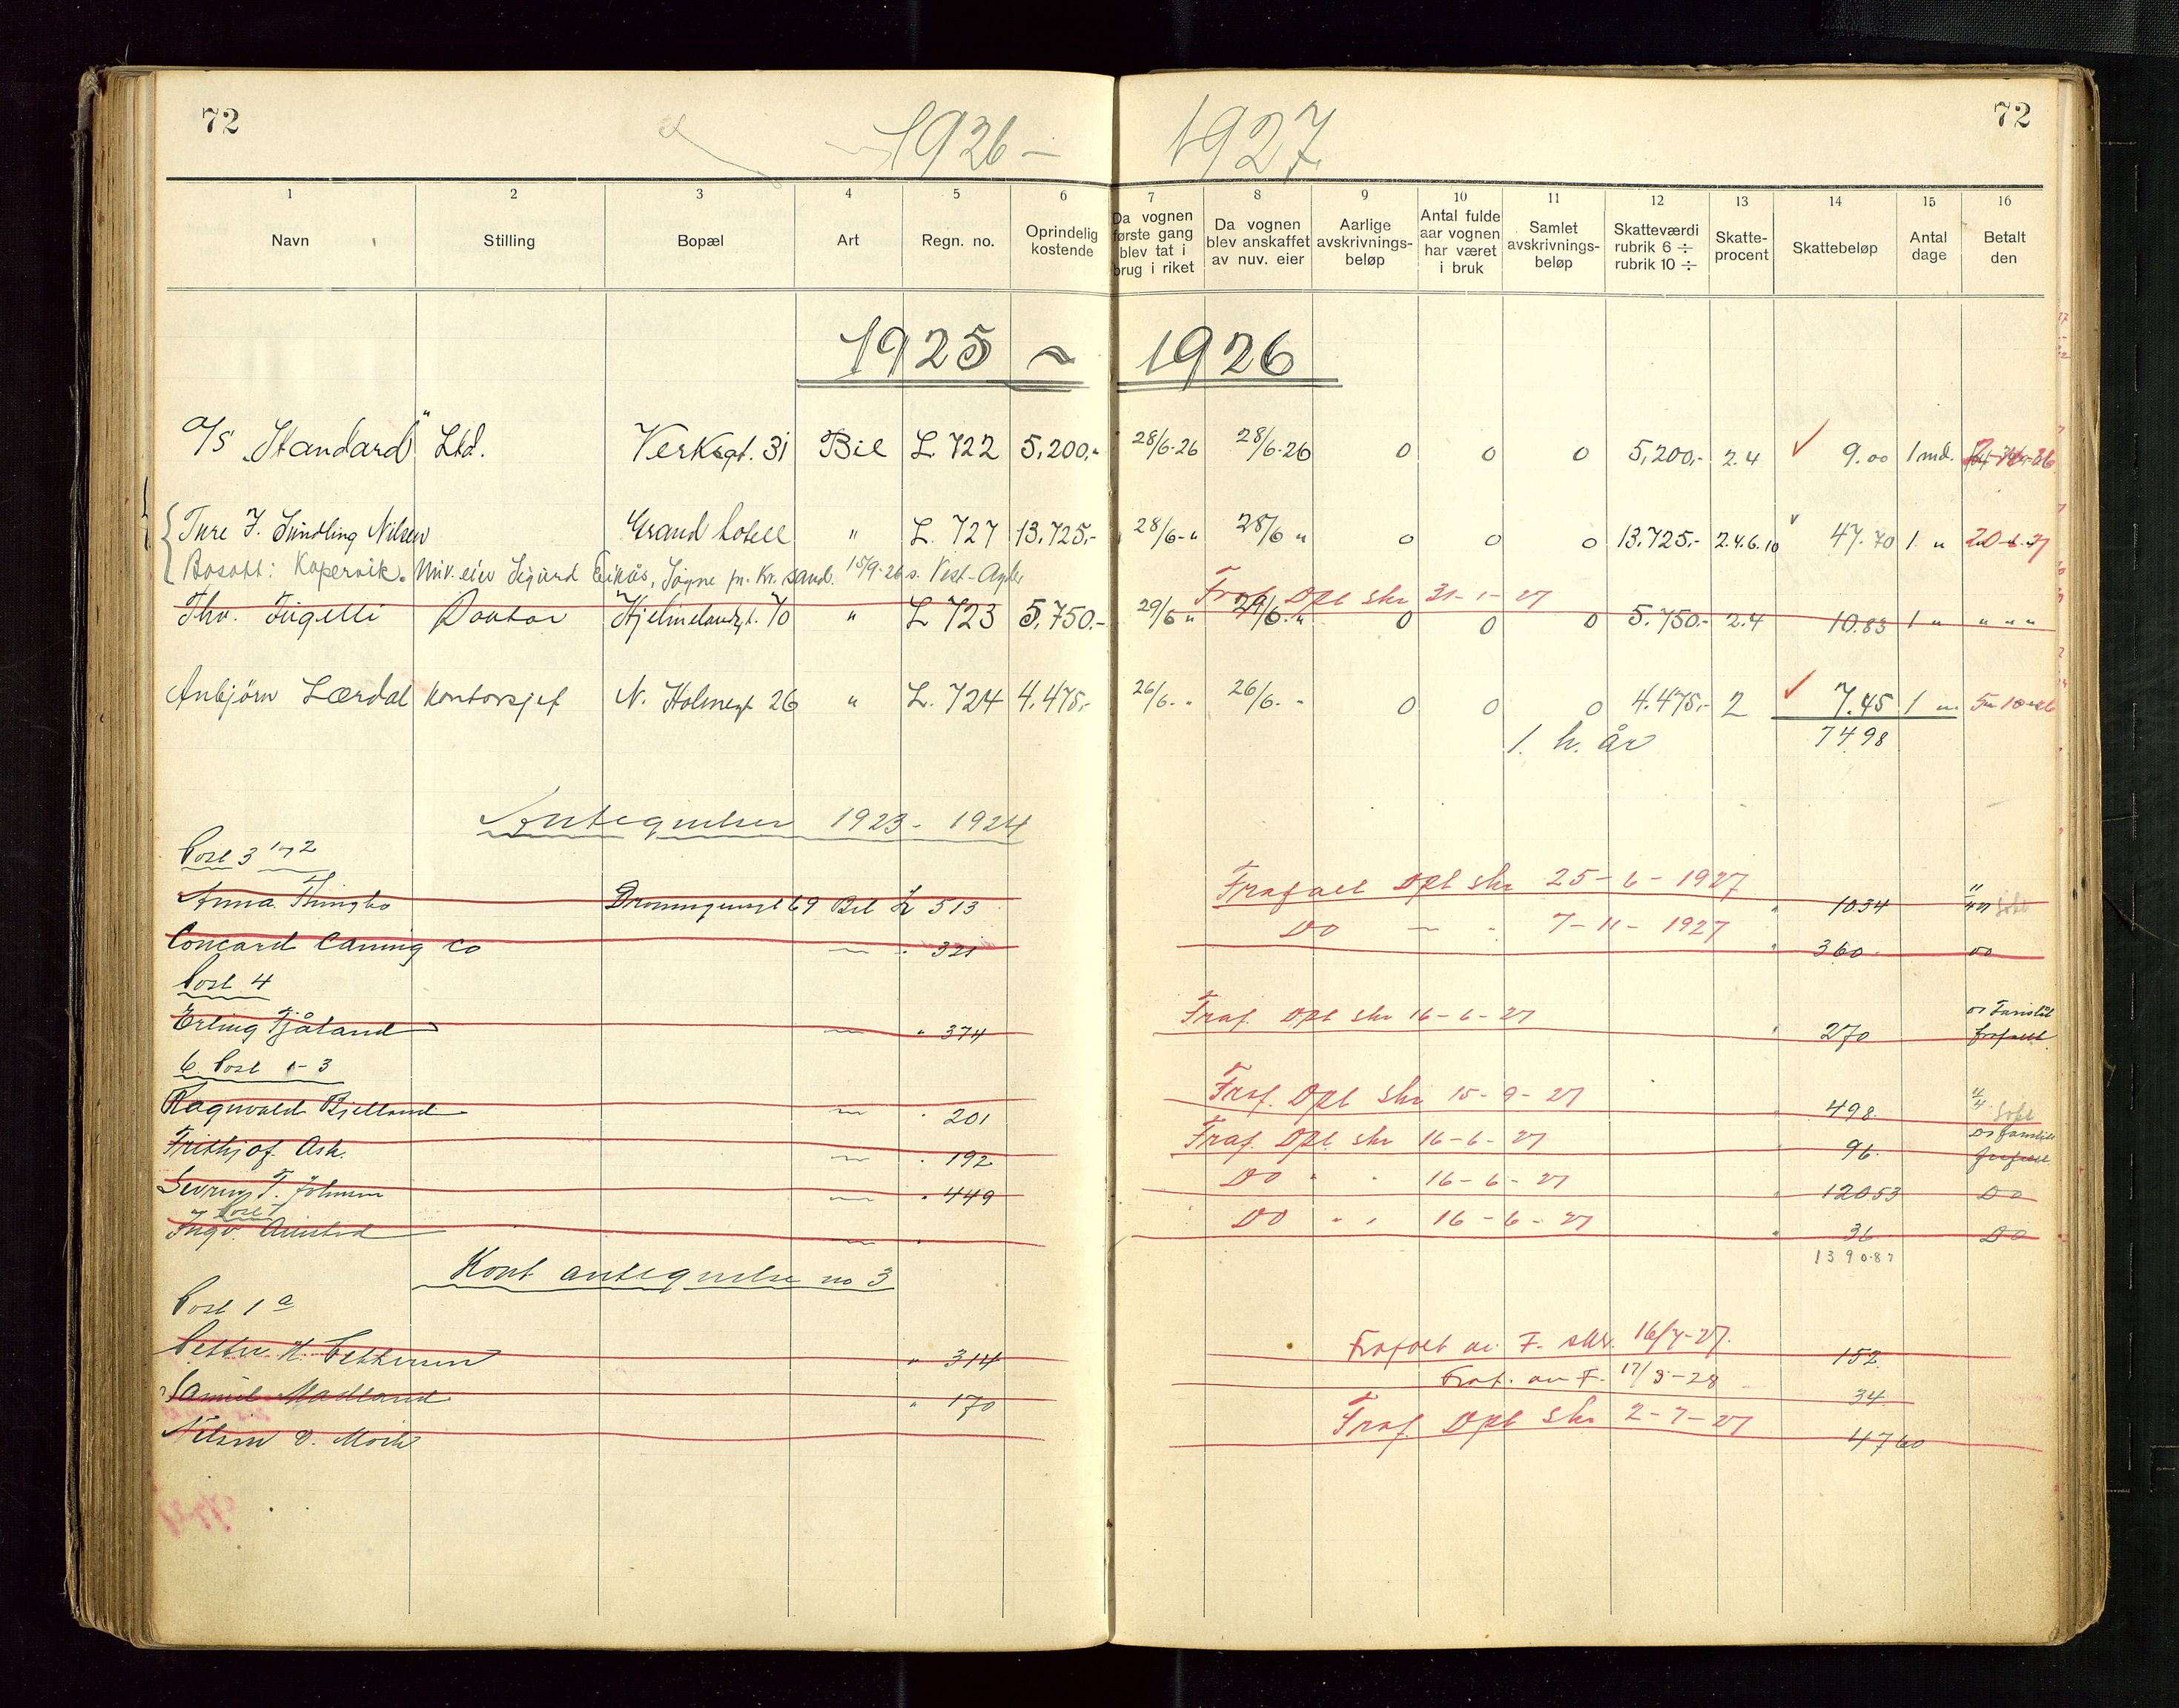 72 72
1926 – 1927
1 2 3 4 5 6 7 8 9 10 11 12 13 14 15 16
Navn Stilling Bopæl Art Regn. no. Oprindelig kostende Da vognen første gang blev tat i brug i riket Da vognen blev anskaffet av nuv. eier Aarlige avskrivnings-beløp Antal fulde aar vognen har været i bruk Samlet avskrivnings-beløp Skatteværdi rubrik 6 ÷ rubrik 10 ÷ Skatte-procent Skattebeløp Antal dage Betalt den
1925 ~ 1926
A/S „Standard" Ltd. Verksgt. 31 Bil L. 722 5,200,- 28/6-26 28/6-26 0 0 0 5,200,- 2.4 9.00 1 md.
Ture F. Sundling Nilsen Grand hotell " L. 727 13,725,- 28/6-" 28/6 " 0 0 0 13,725,- 2.4.6.10 47.70 1 "
Bosatt: Kopervik. Nuv. eier Sigurd Eikås, Søgne pr. Kr. sand. 15/9-26 s. Vest-Agder
Fraf. Dpt skr 31-1-27
Thv. Fügelli Doktor Hjelmelandsgt. 70 " L 723 5,750.- 29/6 " 29/6 " 0 0 0 5.750.- 2.4 10.83 1 " " " "
Anbjörn Lærdal Kontorsjef N. Holmegt 26 " L. 724 4,475,- 26/6. " 26/6. " 0 0 0 4.475,- 2 7.45 1 "
1. h. år 7498
Antegnelser 1923 - 1924
Post 3 1 og 2
Frafalt Dpt skr 25-6-1927
Anna Dronningensgt 69 Bil L 513 1034
Do — " 7-11-1927
Concord Caning Co — " 321 360 do
Post 4
Fraf. Dpt skr 16-6-27
Erling Tjåland — " 374 270 frafalt
6. Post 1-3
Fraf. Dpt skr 15-9-27
Ragnvald Bjelland — " 201 498
Fraf. Dpt skr 16-6-27
Frithjof Ask. — " 192 96.
Do " " 16-6-27
Severin T. Johnsen — " 449 12053 Do
Post 7
Do " " 16-6-27
Ingv. — " 36 Do
1390.87
Kont antegnelse no 3
Post 1 a
Frafalt av F. skr. 16/7-27.
Petter H. Pettersen " 314 152
Fraf. av F. 17/3-28
Samuel Madland " 170 34
Fraf. Dpt skr 2-7-27
Nilsen & Moich 4760